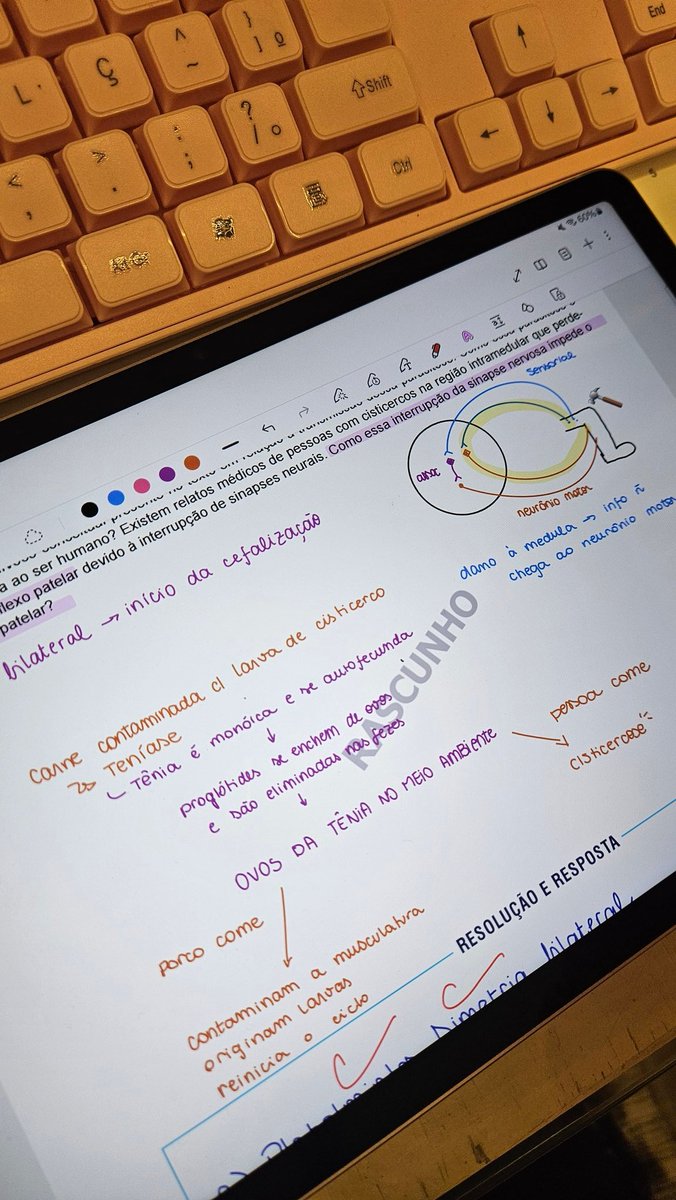 L
Ç
^
~
}
]
º
Shift
End
<
,
>
.
:
;
?
/
°
Ctrl
60%
a ao ser humano? Existem relatos médicos de pessoas com cisticercos na região intramedular que perde-
flexo patelar devido à interrupção de sinapses neurais. Como essa interrupção da sinapse nervosa impede o
patelar?
sensorial
neurônio motor
dano à medula → info ñ
chega ao neurônio motor
bilateral → início da cefalização
carne contaminada c/ larva de cisticerco
Teníase
Tênia é monóica e se autofecunda
↓
proglótides se enchem de ovos
e são eliminadas nas fezes
↓
OVOS DA TÊNIA NO MEIO AMBIENTE
pessoa come
cisticercose
RASCUNHO
porco come
contaminam a musculatura
originam larvas
reinicia o ciclo
RESOLUÇÃO E RESPOSTA
simetria bilateral,